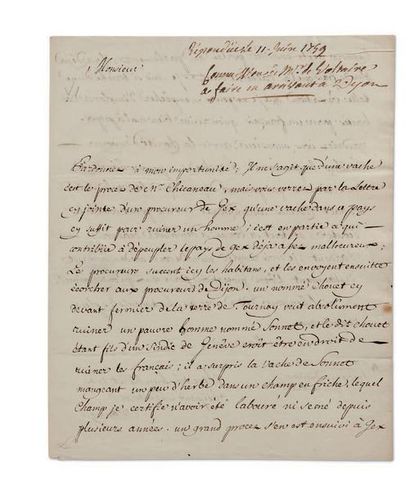 Répondüe le 11. Juin 1759
Monsieur
a faire en arrivant a Dijon
Pardonnez à mon importunité; Il ne s'agit que d'une vache
c'est le procez de Mr. Chicaneau, mais vous verrez par la Lettre
cy jointe d'un procureur de Gex, qu'une vache dans ce pays
cy suffit pour ruiner un homme; c'est en partie ce qui
contribüe à dépeupler le pays de Gex déja assez malheureux;
Les procureurs sucent icy les habitans, et les envoyent ensuitte
écorcher aux procureurs de Dijon. un nommé Chouet cy
devant fermier de la terre de Tournay veut absolument
ruiner un pauvre homme nommé Sonnet, et le dit Chouet
étant fils d'un Sindic de Genêve croit être en droit de
ruiner les français; il a surpris la vache de Sonnet
mangeant un peu d'herbe dans un champ en friche, lequel
champ je certifie n'avoir été labouré ni semé depuis
plusieurs années. un grand procez s'en est ensuivi à Gex